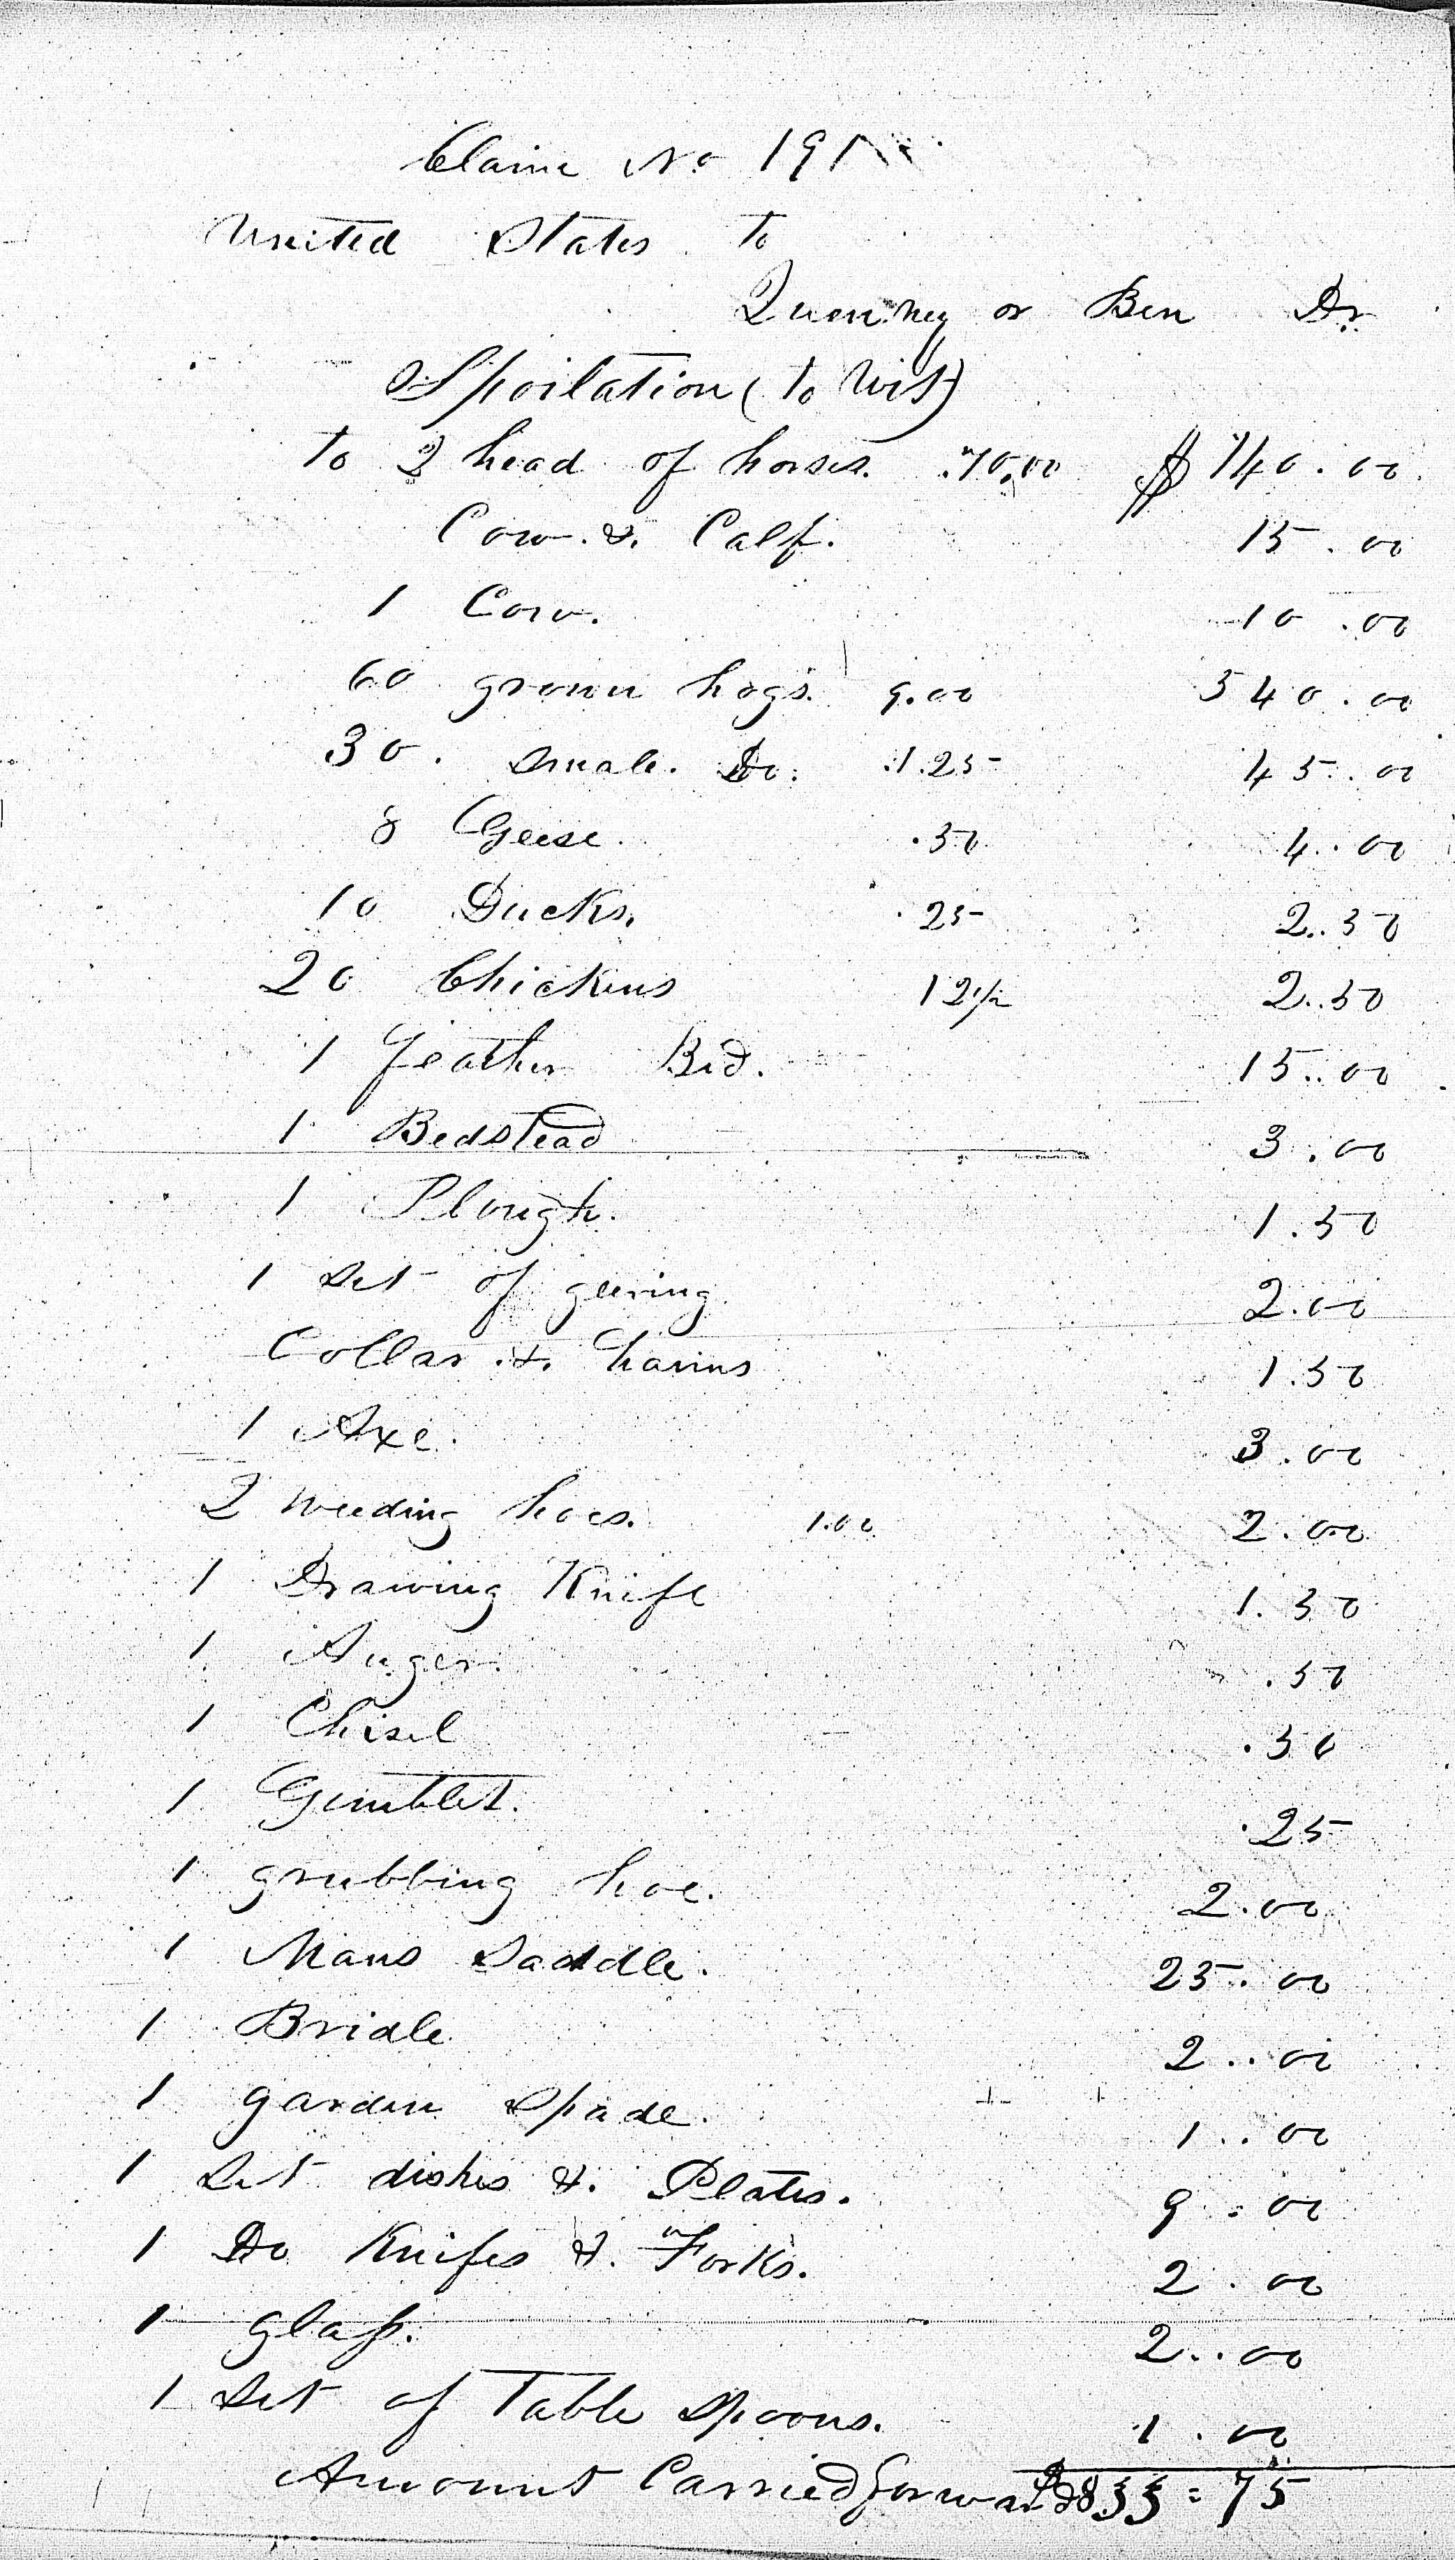 Claim No 191
United States to
Quenney or Ben Dr
Spoilation (to Wit)
to 2 head of horses. 70.00 $ 140.00
Cow & Calf. 15.00
1 Cow. 10.00
60 grown hogs. 9.00 540.00
30. smale. Do. 1.25 45.00
8 Geese. .50 4.00
10 Ducks. .25 2.50
20 Chickens 12½ 2.50
1 Feather Bed. 15.00
1 Bedstead 3.00
1 Plough. 1.50
1 Set of geering 2.00
Collar & hames 1.50
1 Axe. 3.00
2 weeding hoes. 1.00 2.00
1 Drawing Knife 1.50
1 Auger. .50
1 Chisel .50
1 Gimblet. .25
1 grubbing hoe. 2.00
1 Mans Saddle. 25.00
1 Bridle 2.00
1 garden Spade. 1.00
1 Set dishes & Plates. 9.00
1 Do Knifes & Forks. 2.00
1 glass. 2.00
1 Set of Table Spoons. 1.00
Amount Carried forward $835=75